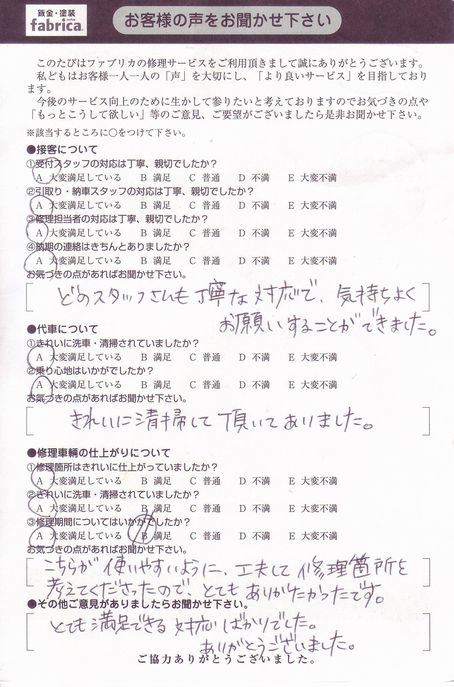 鈑金・塗装
fabrica.
お客様の声をお聞かせ下さい
このたびはファブリカの修理サービスをご利用頂きまして誠にありがとうございます。
私どもはお客様一人一人の「声」を大切にし、「より良いサービス」を目指しており
ます。
今後のサービス向上のために生かして参りたいと考えておりますのでお気づきの点や
「もっとこうして欲しい」等のご意見、ご要望がございましたら是非お聞かせ下さい。
※該当するところに○をつけて下さい。
●接客について
①受付スタッフの対応は丁寧、親切でしたか?
A 大変満足している B 満足 C 普通 D 不満 E 大変不満
②引取り・納車スタッフの対応は丁寧、親切でしたか?
A 大変満足している B 満足 C 普通 D 不満 E 大変不満
③修理担当者の対応は丁寧、親切でしたか?
A 大変満足している B 満足 C 普通 D 不満 E 大変不満
④納期の連絡はきちんとありましたか?
A 大変満足している B 満足 C 普通 D 不満 E 大変不満
お気づきの点があればお聞かせ下さい。
どのスタッフさんも丁寧な対応で、気持ちよく
お願いすることができました。
●代車について
①きれいに洗車・清掃されていましたか?
A 大変満足している B 満足 C 普通 D 不満 E 大変不満
②乗り心地はいかがでしたか?
A 大変満足している B 満足 C 普通 D 不満 E 大変不満
お気づきの点があればお聞かせ下さい。
きれいに清掃して頂いてありました。
●修理車輌の仕上がりについて
①修理箇所はきれいに仕上がっていましたか?
A 大変満足している B 満足 C 普通 D 不満 E 大変不満
②きれいに洗車・清掃されていましたか?
A 大変満足している B 満足 C 普通 D 不満 E 大変不満
③修理期間についてはいかがでしたか?
A 大変満足している B 満足 C 普通 D 不満 E 大変不満
お気づきの点があればお聞かせ下さい。
こちらが使いやすいように、工夫して修理箇所を
考えてくださったので、とてもありがたかったです。
●その他ご意見がありましたらお聞かせ下さい。
とても満足できる対応ばかりでした。
ありがとうございました。
ご協力ありがとうございました。